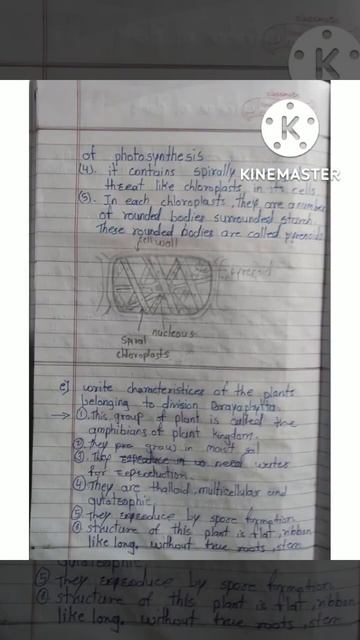 classmate
KINEMASTER
of photosynthesis
(4). it contains spirally
threat like chloroplasts in its cells.
(5). In each chloroplasts, they are a number
of rounded bodies surrounded starch.
These rounded bodies are called pyrenoids
cell wall
pyrenoid
nucleous
spiral
chloroplasts
e) write characteristices of the plants
belonging to division Barayaphytta.
→ ① This group of plant is called the
amphibians of plant kingdom.
② they grow in moist soil
③ They need water
for reproduction.
④ They are thalloid, multicellular and
autotrophic,
⑤ They reproduce by spore formation
⑥ structure of this plant is flat, ribbon
like long, without true roots, stem
autotrophic,
⑤ They reproduce by spore formation
⑥ structure of this plant is flat, ribbon
like long, without true roots, stem